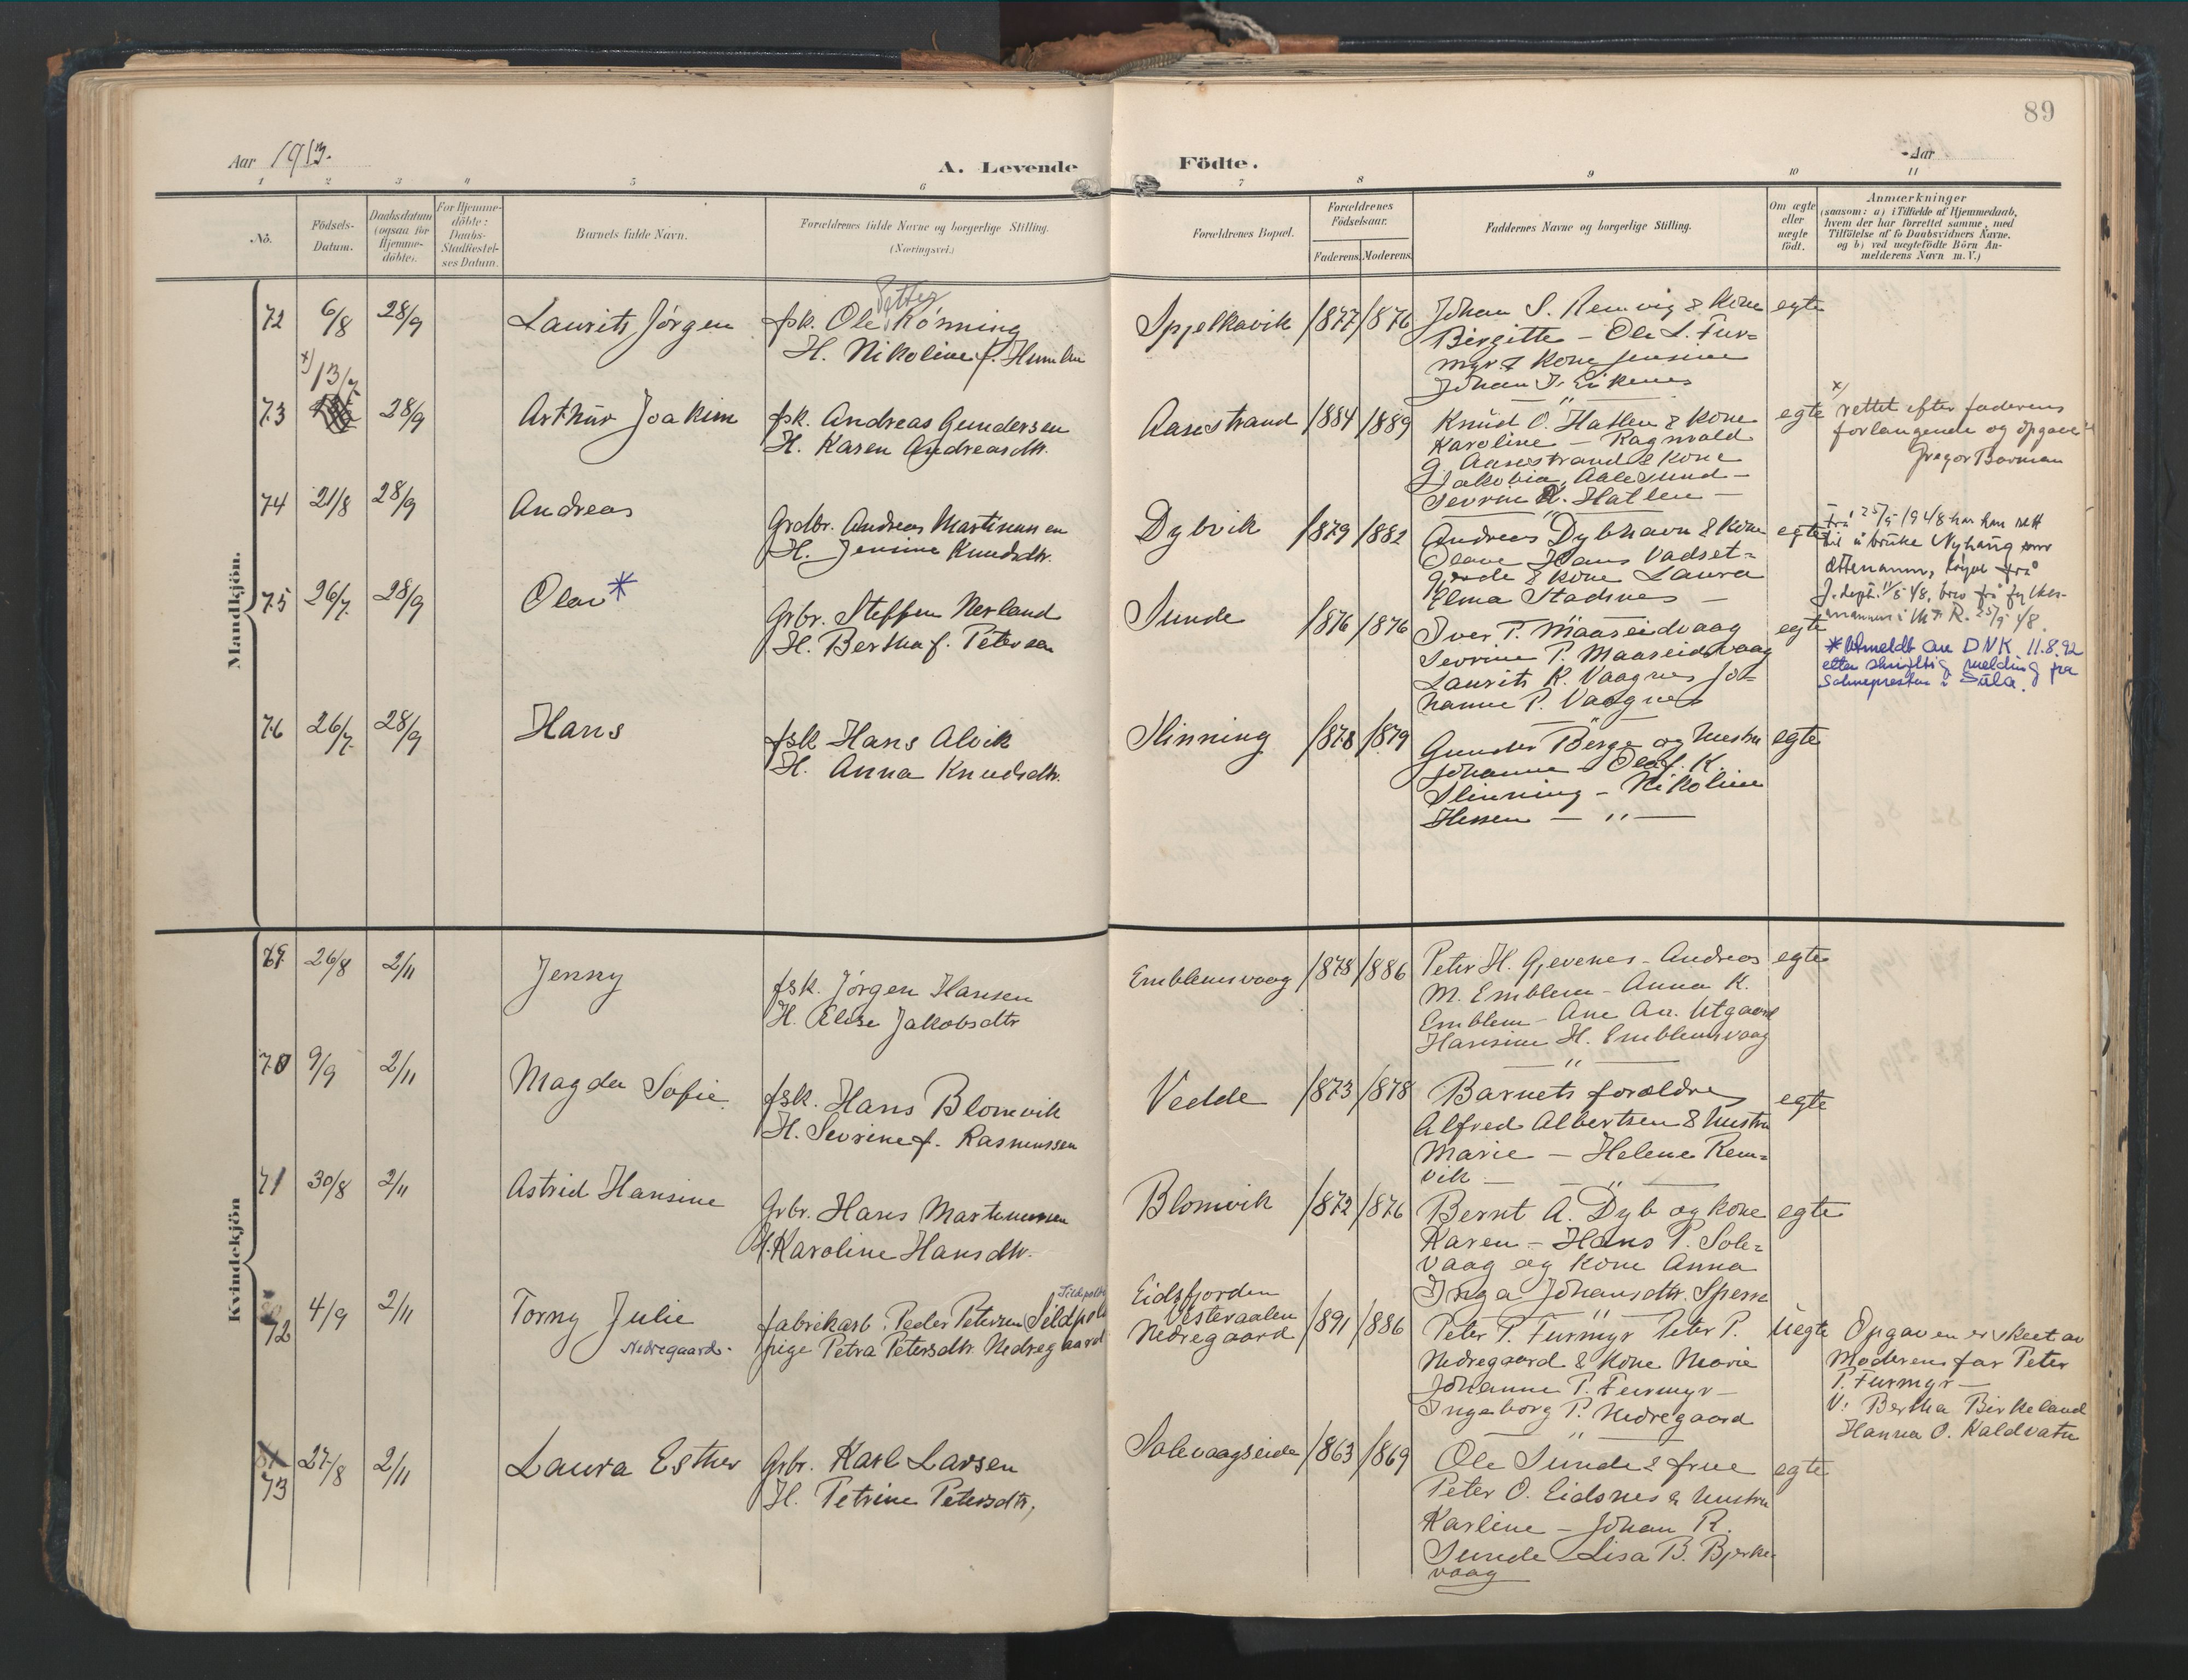 89
Aar 1913.
A. Levende Födte.
Aar
1 2 3 4 5 6 7 8 9 10 11
No.
Födsels-
Datum.
Daabsdatum
(ogsaa for
Hjemme-
döbte).
For Hjemme-
döbte:
Daabs-
Stadfæstel-
ses Datum.
Barnets fulde Navn.
Forældrenes fulde Navne og borgerlige Stilling.
(Næringsvei.)
Forældrenes Bopæl.
Forældrenes
Födselsaar.
Faderens. Moderens.
Faddernes Navne og borgerlige Stilling.
Om ægte
eller
uægte
født.
Anmærkninger
(saasom: a) i Tilfælde af Hjemmedaab,
hvem der har forrettet samme, med
Tilföielse af to Daabsvidners Navne.
og b) ved uægtefödte Börn An-
melderens Navn m. V.)
Mandkjön.
72 6/8 28/9 Laurits Jørgen
fsk. Ole Petter Rønning
H. Nikoline f. Humlen
Spjelkavik 1877 1876
Johan S. Remvig & Kone
Birgitte – Ole L. Fur=
myr & Kone Jensine
Johan J. Eikenes
egte
73 x) 13/7 28/9 Arthur Joakim
fsk. Andreas Gundersen
H. Karen Andreasdtr.
Aasestrand 1884 1889
Knud O. Hatlen & Kone
Karoline – Ragnvald
G. Aasestrand & Kone
Jakobia, Aalesund –
Sevrin K. Hatlen –
egte
x) rettet efter faderens
forlangende og opgave
Gregor Borman
74 21/8 28/9 Andreas
Grdbr. Andreas Martinussen
H. Jensine Knudsdtr.
Dybvik 1879 1882
Andreas Dybhavn & Kone
Olave Hans Vadset=
gjerde & Kone Laura
Elma Stadsnes –
egte
Frå 25/9 1948 har han rett
til å bruke Nyhaug som
ættenamn, løyve frå
J.dept. 11/8 48, brev frå fylkes-
mannen i M & R. 25/9 48.
75 26/7 28/9 Olav *
Grbr. Steffen Nerland
H. Bertha f. Petersen
Sunde 1876 1876
Iver P. Maaseidvaag
Sevrine P. Maaseidvaag
Laurits K. Vaagnes Jo=
hanne P. Vaagnes
egte
* Utmeldt av DNK 11.8.92
etter skriftlig melding fra
soknepresten i Sula.
76 26/7 28/9 Hans
fsk Hans Alvik
H. Anna Knudsdtr.
Slinning 1878 1879
Gunder Berge og hustru
Johanne – Olaf K.
Slinning – Nikoline
Hessen – " –
egte
Kvindekjön
69 26/8 2/11 Jenny
fsk. Jørgen Hansen
H. Elise Jakobsdtr
Emblemsvaag 1878 1886
Peter H. Gjevenes – Andreas
M. Emblem – Anna K.
Emblem – Ane Aa. Utgaard
Hansine H. Emblemsvaag
egte
70 9/9 2/11 Magda Sofie
fsk. Hans Blomvik
H. Sevrine f. Rasmussen
Vedde 1873 1878
Barnets forældre
Alfred Albertsen & hustru
Marie – Helene Rem=
vik –
egte
71 30/8 2/11 Astrid Hansine
Grbr. Hans Martinussen
H. Karoline Hansdtr.
Blomvik 1872 1876
Bernt A. Dyb og kone
Karen – Hans P. Sole=
vaag og kone Anna
Inga Johansdtr. Sperre
egte
72 4/9 2/11 Torny Julie
Nedregaard.
fabrikarb. Peder Petersen Sildpoll
pige Petra Petersdtr. Nedregaard
Eidsfjorden
Vesteraalen
Nedregaard
1891 1886
Peter P. Furmyr Peter P.
Nedregaard & Kone Marie
Johanne P. Furmyr –
Ingeborg P. Nedregaard
Uegte
Opgaven er skeet av
Moderens far Peter
P. Furmyr –
V: Bertha Birkeland
Hanna O. Kaldvatn
81 73 27/8 2/11 Laura Esther
Grbr. Karl Larsen
H. Petrine Petersdtr,
Solevaagseide 1863 1869
Ole Sunde & frue
Peter O. Eidsnes & hustru
Karline – Johan R.
Sunde Lisa B. Bjerke=
vaag
egte